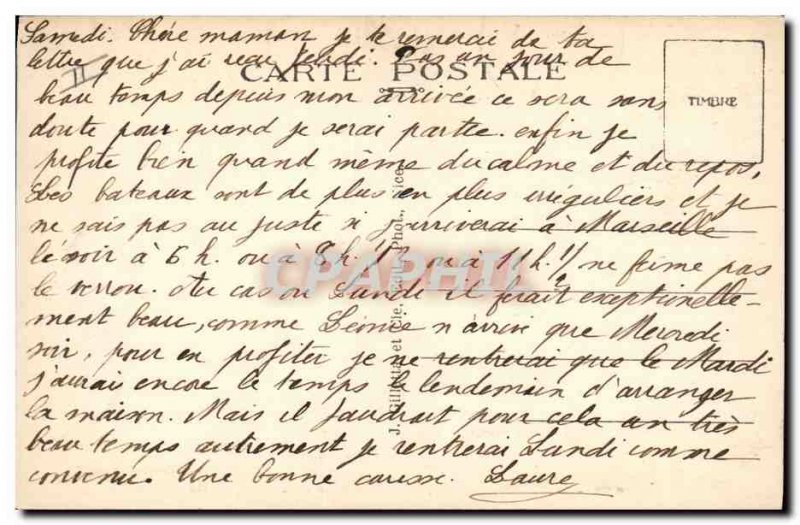 Samedi. Chère maman je te remerci de ta
lettre que j'ai reçu Jeudi. Pas un jour de
CARTE POSTALE
beau temps depuis mon arrivée ce sera sans
TIMBRE
doute pour quand je serai partie. enfin je
profite bien quand même du calme et du repos,
Les bateaux sont de plus en plus irréguliers et je
ne sais pas au juste si j'arriverai à Marseille
le soir à 6 h. ou à 8 h. 1/2 ou à 11 h. !/ ne ferme pas
le verrou. Au cas où Lundi il ferait exceptionelle-
ment beau, comme Léonce n'arrive que Mercredi
soir, pour en profiter je ne rentrerai que le Mardi
j'aurai encore le temps le lendemain d'arranger
la maison. Mais il faudrait pour cela un très
beau temps autrement je rentrerai Lundi comme
convenu. Une bonne caresse. Laure
et Cie, Phot., Nice
CPAPHIL